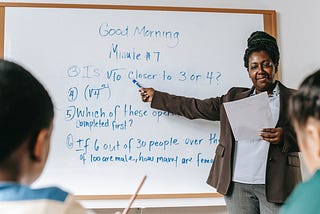 Good Morning
Minute #7
③ Is √10 closer to 3 or 4?
④ (√4)⁴
⑤ Which of these
completed first?
⑥ If 6 out of 30 people over the
of 100 are male, how many are fema